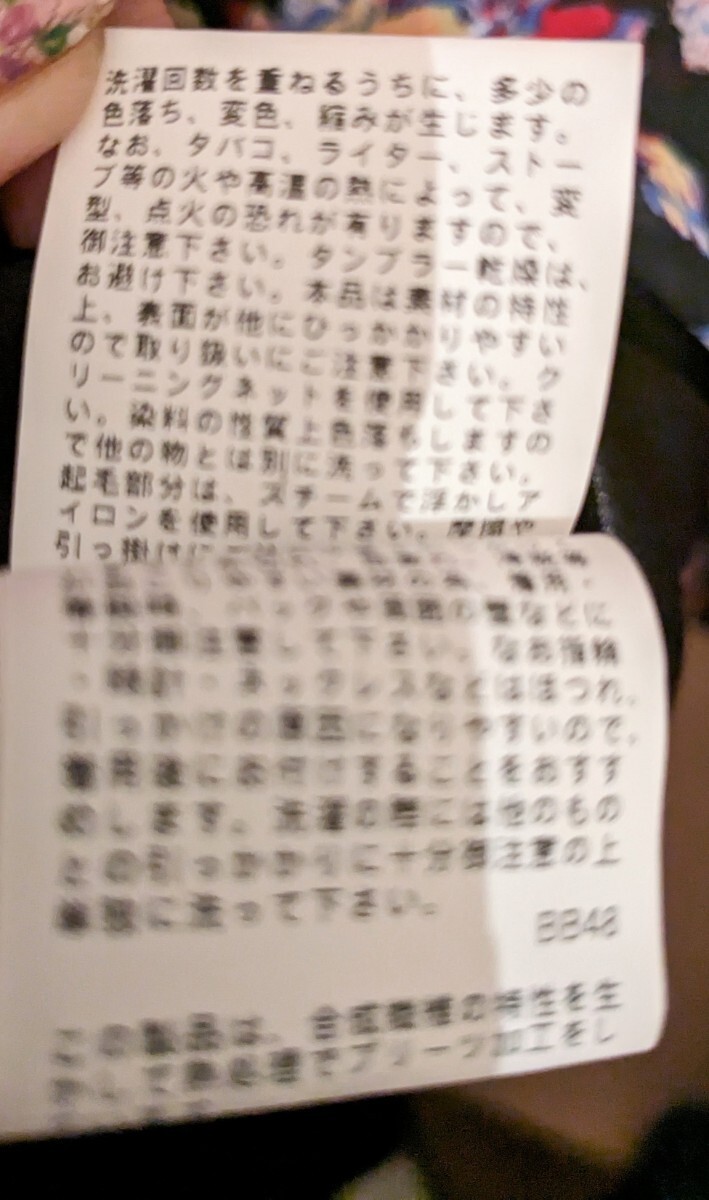 洗濯回数を重ねるうちに、多少の
色落ち、変色、縮みが生じます。
なお、タバコ、ライター、ストー
ブ等の火や高温の熱によって、変
型、点火の恐れが有りますので、
御注意下さい。タンブラー乾燥は、
お避け下さい。本品は素材の特性
上、表面が他にひっかかりやすい
ので取り扱いにご注意下さい。ク
リーニングネットを使用して下さ
い。染料の性質上色落ちしますの
で他の物とは別に洗って下さい。
起毛部分は、スチームで浮かしア
イロンを使用して下さい。摩擦や
引っ掛けに
注意して下さい。なお指輪
・時計・ネックレスなどはほつれ、
引っかけの原因になりやすいので、
着用後にお付けすることをおすす
めします。洗濯の際には他のもの
との引っかかりに十分御注意の上
単独に洗って下さい。
BB48
この製品は、合成繊維の特性を生
かして熱処理でプリーツ加工をし